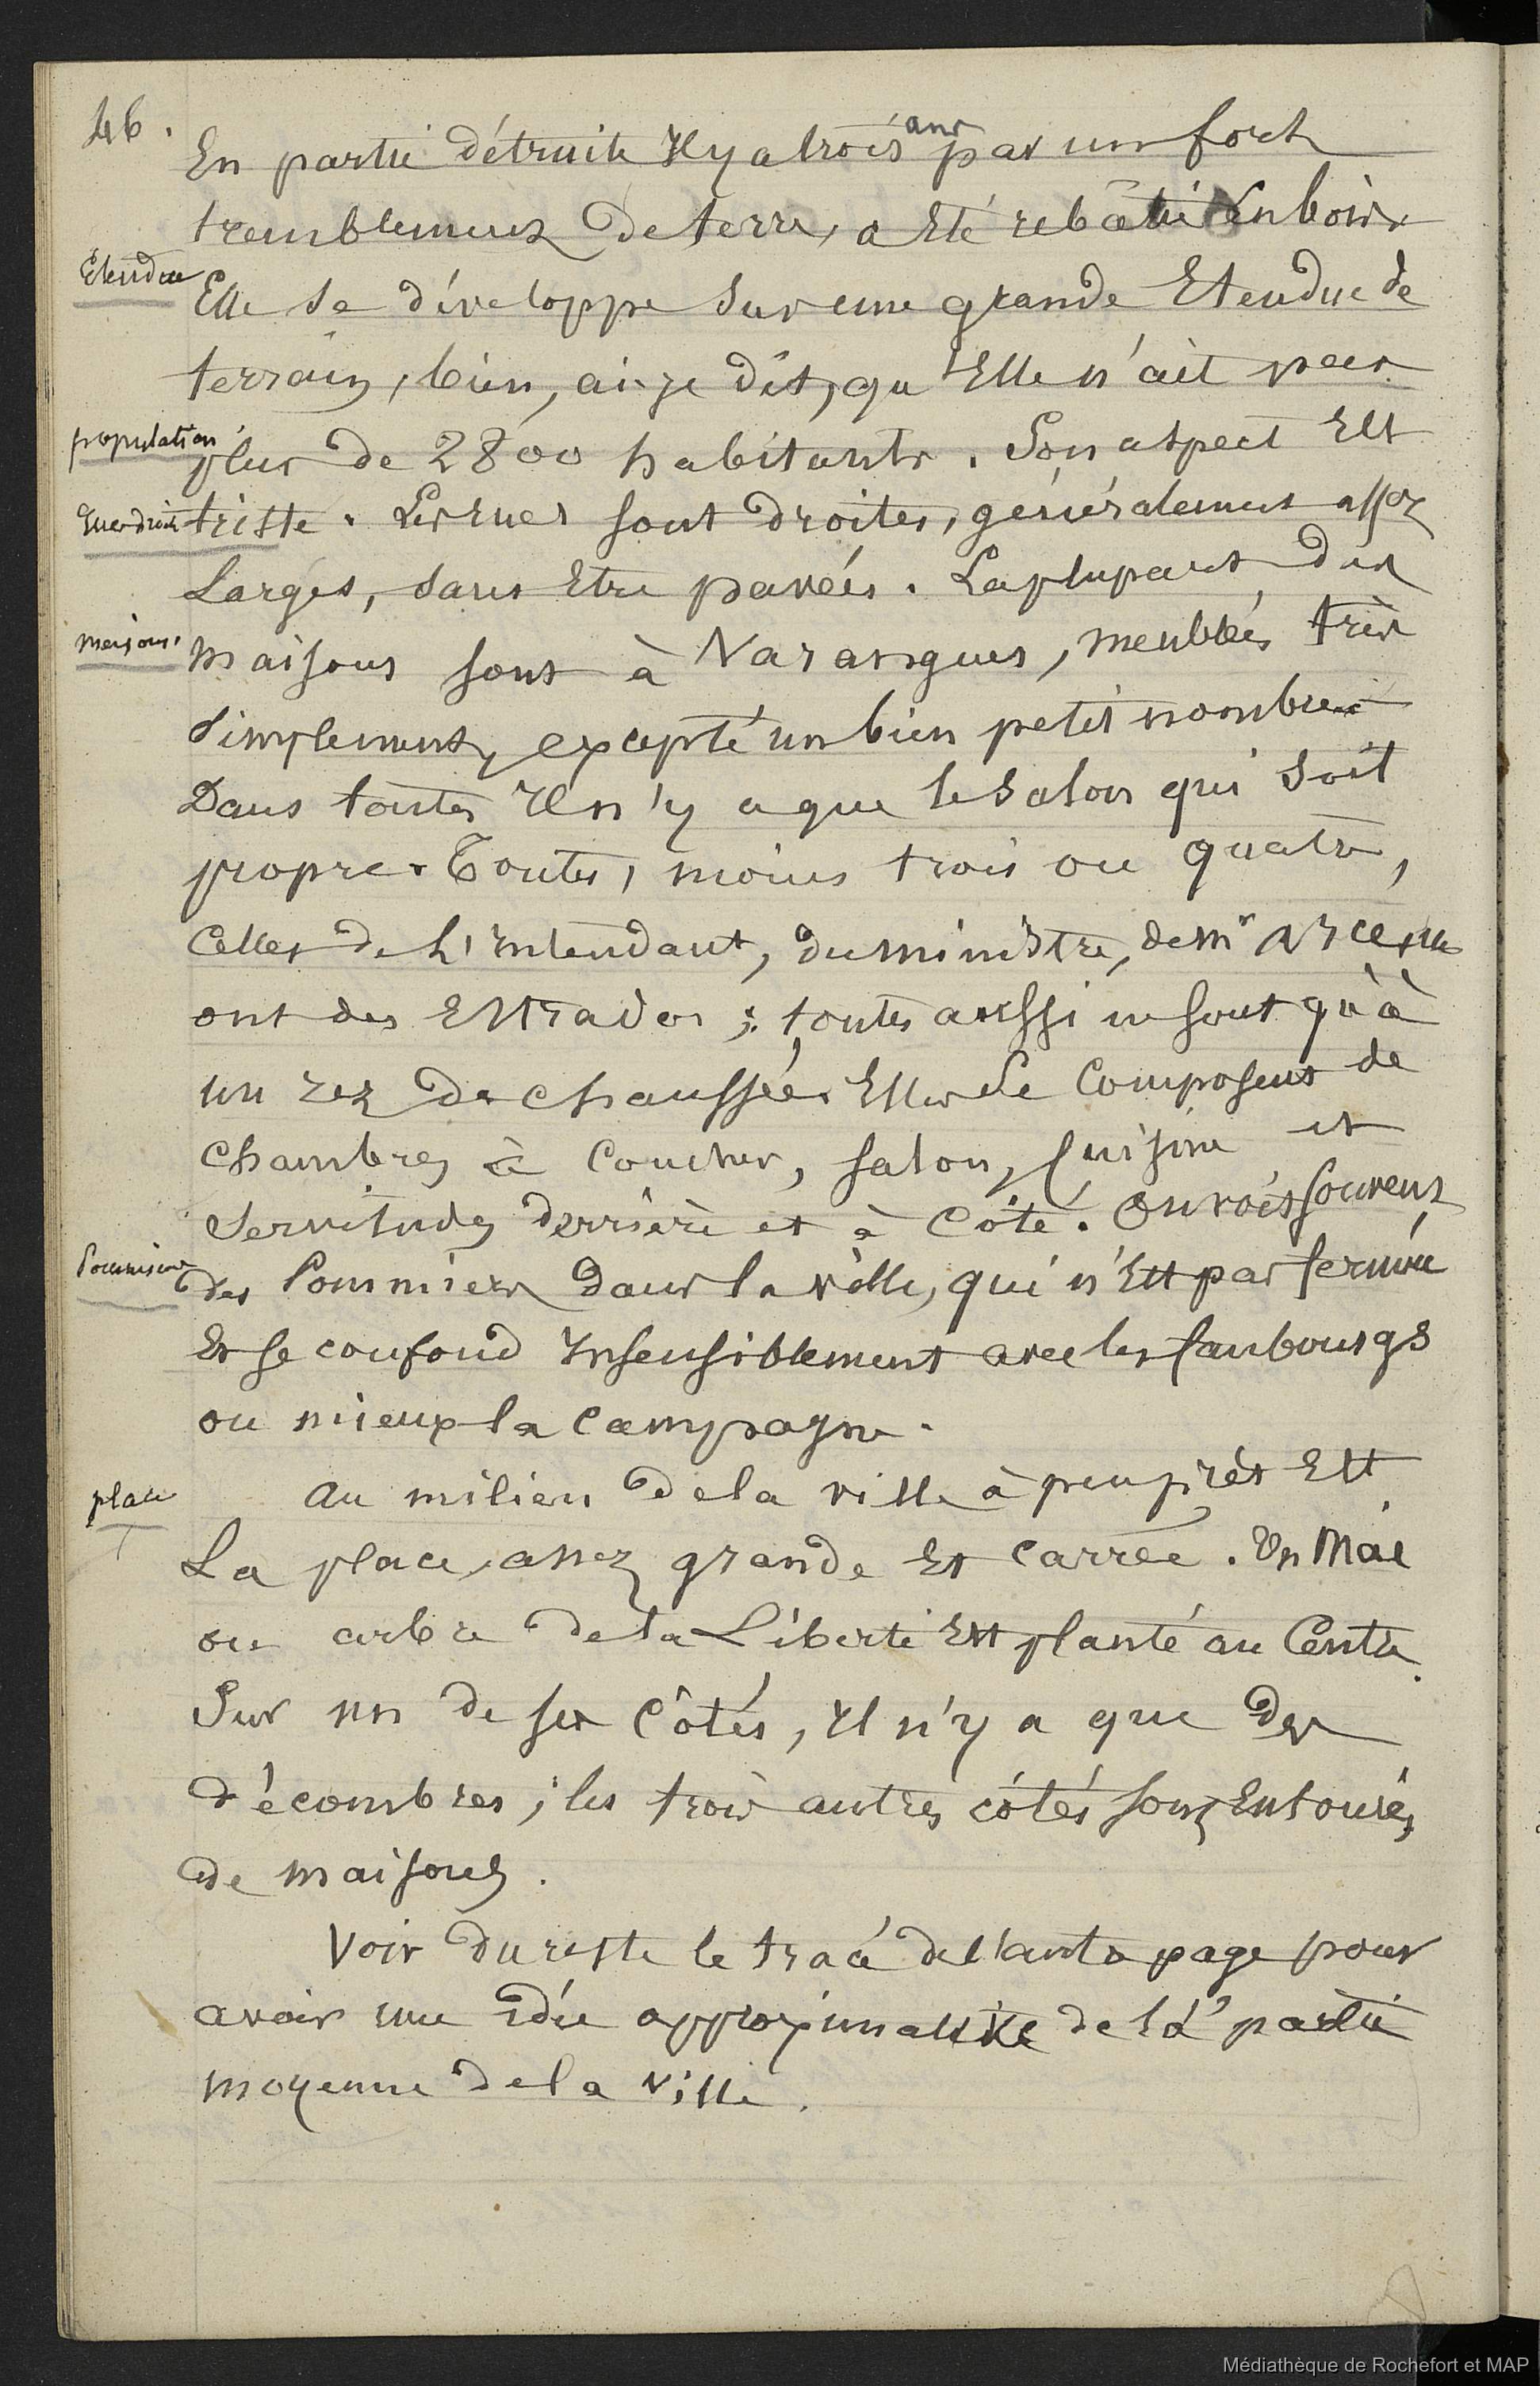 46.
En partie détruite Il y a trois ans par un fort
tremblement de terre, a Eté rebatie En bois.
Etendue
Elle se développe sur une grande Etendue de
terrain, bien, ai-je dit, qu'Elle n'ait pas
population
plus de 2800 habitants. Son aspect Est
Rues droites
triste. Les rues sont droites, généralement assez
Larges, sans Etre pavées. La plupart des
maisons
maisons sont à Varangues, meublées très
simplement, excepté un bien petit nombre
Dans toutes Il n'y a que le salon qui soit
propre. Toutes, moins trois ou quatre,
Celles de L'Intendant, du ministre, de mr
ont des Estrades; toutes aussi ne sont qu'à
un rez de chaussée. Elles se Composent de
Chambres à Coucher, salon, Cuisine et
Servitudes derrière et à Côté. On voit souvent
Pommiers
des Pommiers dans la ville, qui n'Est pas fermée
Et se confond Insensiblement avec les faubourgs
ou mieux la Campagne.
place
Au milieu de la ville à peu près Est
La place, assez grande Et Carrée. Un Mai
ou arbre de la Liberté Est planté au Centre.
Sur un de ses Côtés, Il n'y a que des
décombres; les trois autres côtés sont Entourés
de maisons.
Voir du reste le tracé de l'autre page pour
avoir une Idée approximative de la partie
moyenne de la ville.
Médiathèque de Rochefort et MAP